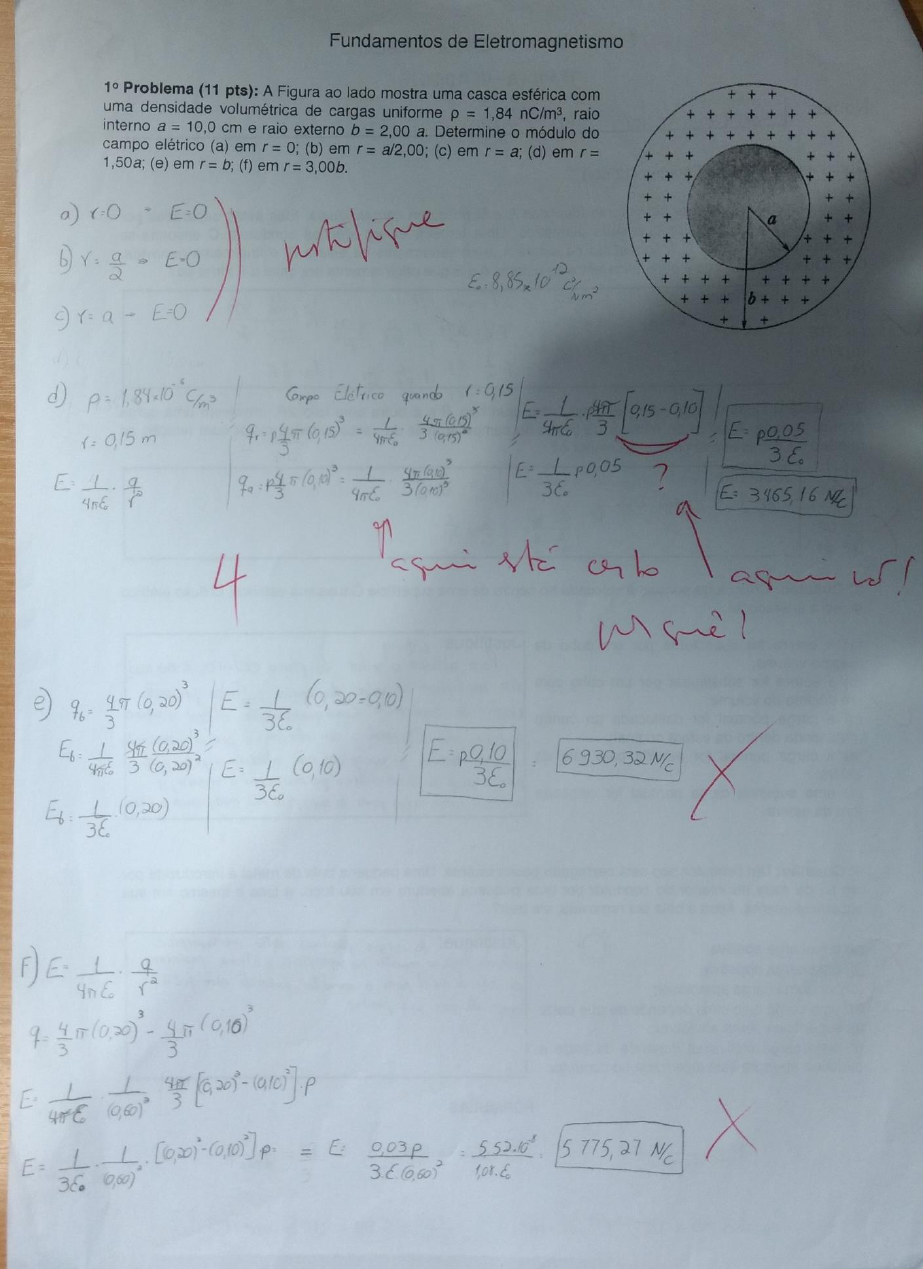 Fundamentos de Eletromagnetismo
1º Problema (11 pts): A Figura ao lado mostra uma casca esférica com
uma densidade volumétrica de cargas uniforme ρ = 1,84 nC/m³, raio
interno a = 10,0 cm e raio externo b = 2,00 a. Determine o módulo do
campo elétrico (a) em r = 0; (b) em r = a/2,00; (c) em r = a; (d) em r =
1,50a; (e) em r = b; (f) em r = 3,00b.
a
b
a) r=0 - E=0
b) r= a/2 ⇒ E=0
c) r= a - E=0
justifique
ε₀=8,85×10¹² C²/Nm²
d) ρ=1,84×10⁻⁶ C/m³
r=0,15 m
E= 1/4πε₀ · q/r²
Campo Elétrico quando r=0,15
q_r=ρ4/3 π(0,15)³ = 1/4πε₀ · 4π(0,15)³/3(0,15)²
q_a=ρ4/3 π(0,10)³ = 1/4πε₀ · 4π(0,10)³/3(0,10)²
E= 1/4πε₀ · ρ4π/3 [0,15-0,10]
E= 1/3ε₀ ρ0,05
?
E= ρ0,05/3ε₀
E= 3465,16 N/C
4
aqui está certo
aqui não!
por quê?
e) q_b= 4/3 π(0,20)³
E_b= 1/4πε₀ 4π/3 (0,20)³/(0,20)² =
E_b= 1/3ε₀ · (0,20)
E= 1/3ε₀ (0,20-0,10)
E= 1/3ε₀ (0,10)
E= ρ0,10/3ε₀
= 6930,32 N/C
X
F) E= 1/4πε₀ · q/r²
q= 4/3 π(0,20)³ - 4/3 π(0,10)³
E= 1/4πε₀ · 1/(0,60)² · 4π/3 [(0,20)³-(0,10)³]·ρ
E= 1/3ε₀ · 1/(0,60)² · [(0,20)²-(0,10)²]ρ = E= 0,03ρ/3.ε₀(0,60)² = 5775,27 N/C
X